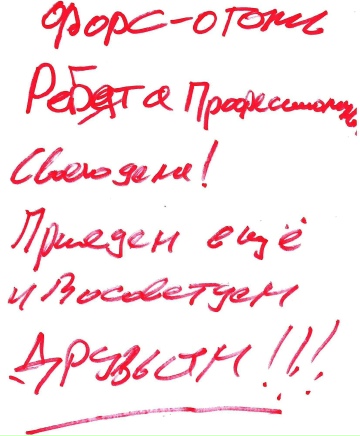 Форс-огонь
Работа Профессионалы
Своего дела!
Приедем ещё
и Посоветуем
ДРУЗЬЯМ!!!